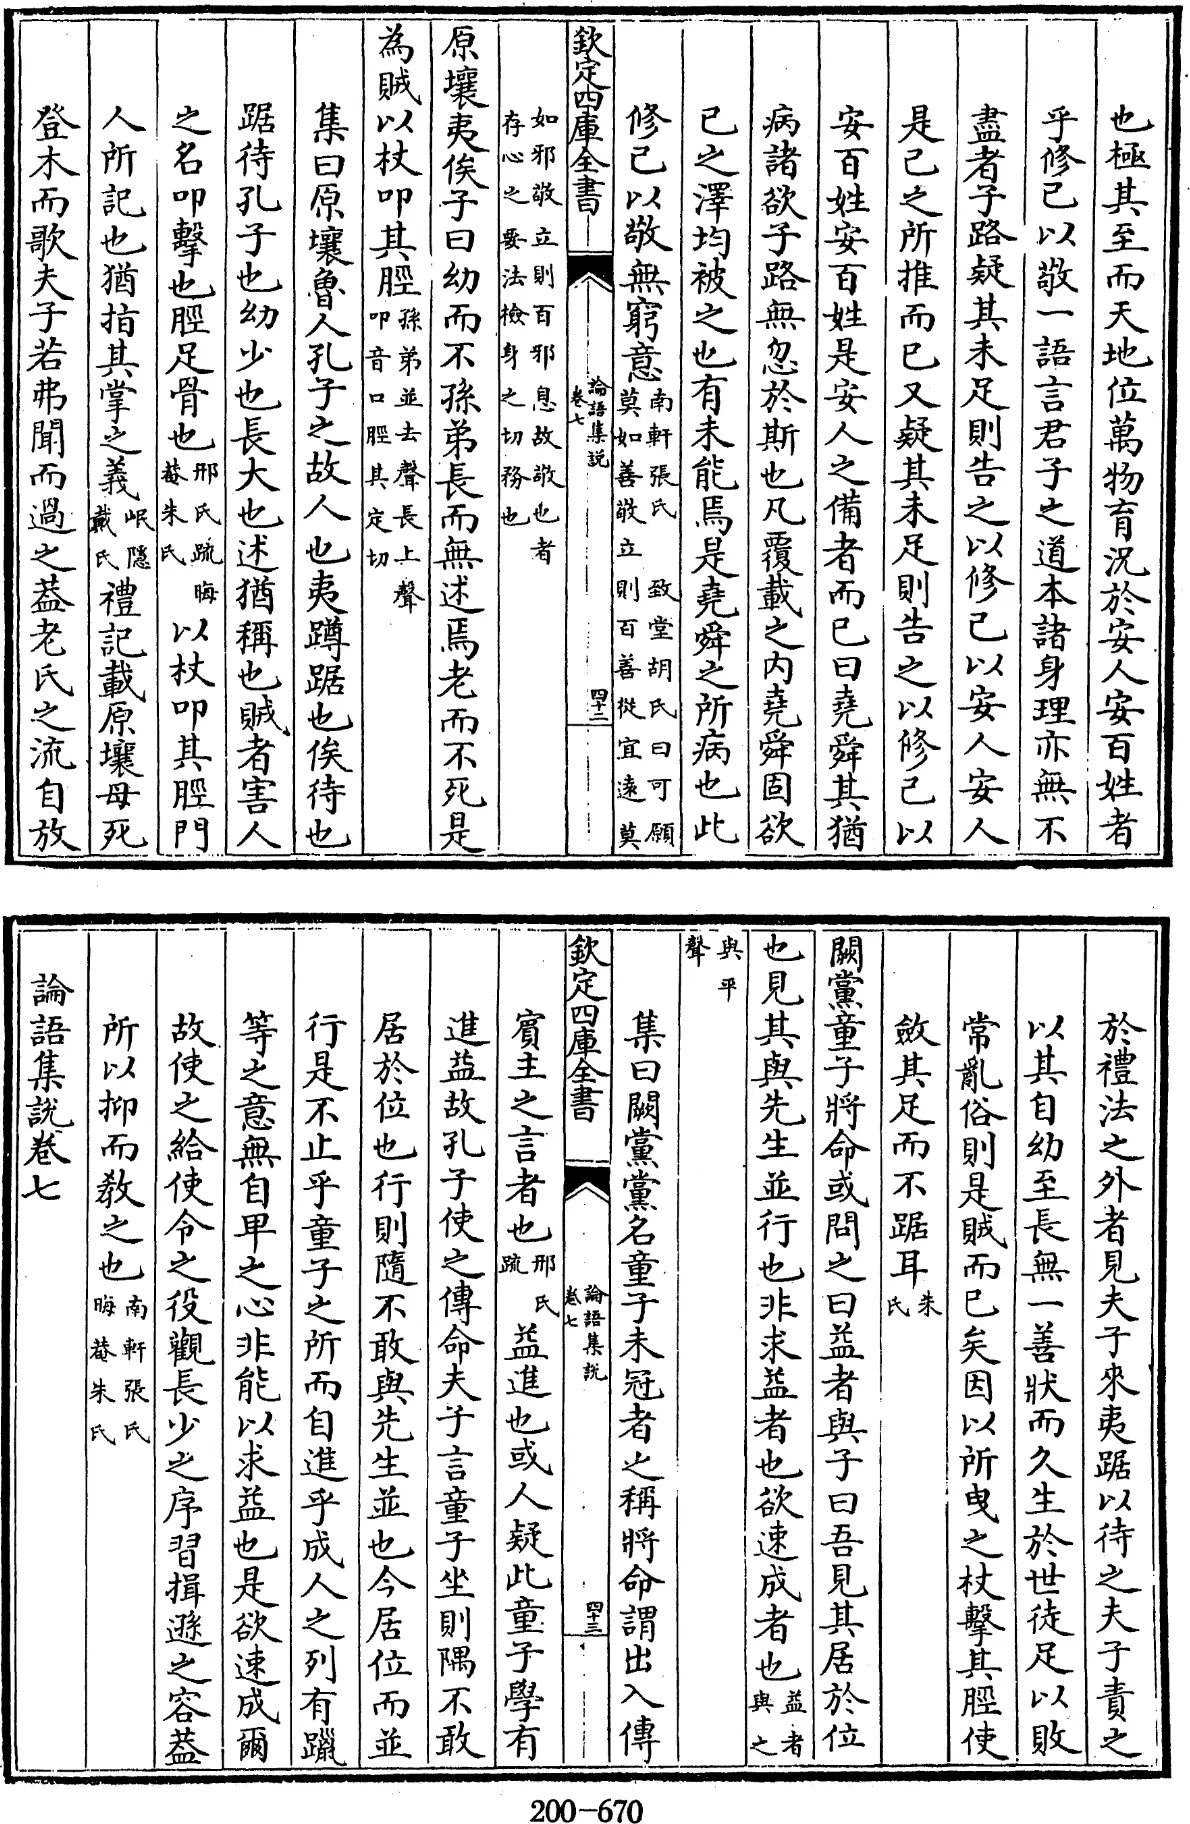 也極其至而天地位萬物育況於安人安百姓者
乎修己以敬一語言君子之道本諸身理亦無不
盡者子路疑其未足則告之以修己以安人安人
是己之所推而已又疑其未足則告之以修己以
安百姓安百姓是安人之備者而已曰堯舜其猶
病諸欲子路無忽於斯也凡覆載之内堯舜固欲
己之澤均被之也有未能焉是堯舜之所病也此
修己以敬無窮意南軒張氏 致堂胡氏曰可願
莫如善敬立則百善從宜遠莫
欽定四庫全書
論語集説
卷七
四十二
如邪敬立則百邪息故敬也者
存心之要法檢身之切務也
原壤夷俟子曰幼而不孫弟長而無述焉老而不死是
為賊以杖叩其脛孫弟並去聲長上聲
叩音口脛其定切
集曰原壤魯人孔子之故人也夷蹲踞也俟待也
踞待孔子也幼少也長大也述猶稱也賊者害人
之名叩擊也脛足骨也邢氏疏晦
菴朱氏以杖叩其脛門
人所記也猶指其掌之義岷隱
戴氏禮記載原壤母死
登木而歌夫子若弗聞而過之葢老氏之流自放
於禮法之外者見夫子來夷踞以待之夫子責之
以其自幼至長無一善狀而久生於世徒足以敗
常亂俗則是賊而已矣因以所曳之杖擊其脛使
斂其足而不踞耳朱
氏
闕黨童子將命或問之曰益者與子曰吾見其居於位
也見其與先生並行也非求益者也欲速成者也益者
與之
與平
聲
集曰闕黨黨名童子未冠者之稱將命謂出入傳
欽定四庫全書
論語集説
卷七
四十三
賓主之言者也邢氏
疏益進也或人疑此童子學有
進益故孔子使之傳命夫子言童子坐則隅不敢
居於位也行則隨不敢與先生並也今居位而並
行是不止乎童子之所而自進乎成人之列有躐
等之意無自卑之心非能以求益也是欲速成爾
故使之給使令之役觀長少之序習揖遜之容葢
所以抑而教之也南軒張氏
晦菴朱氏
論語集説卷七
200-670